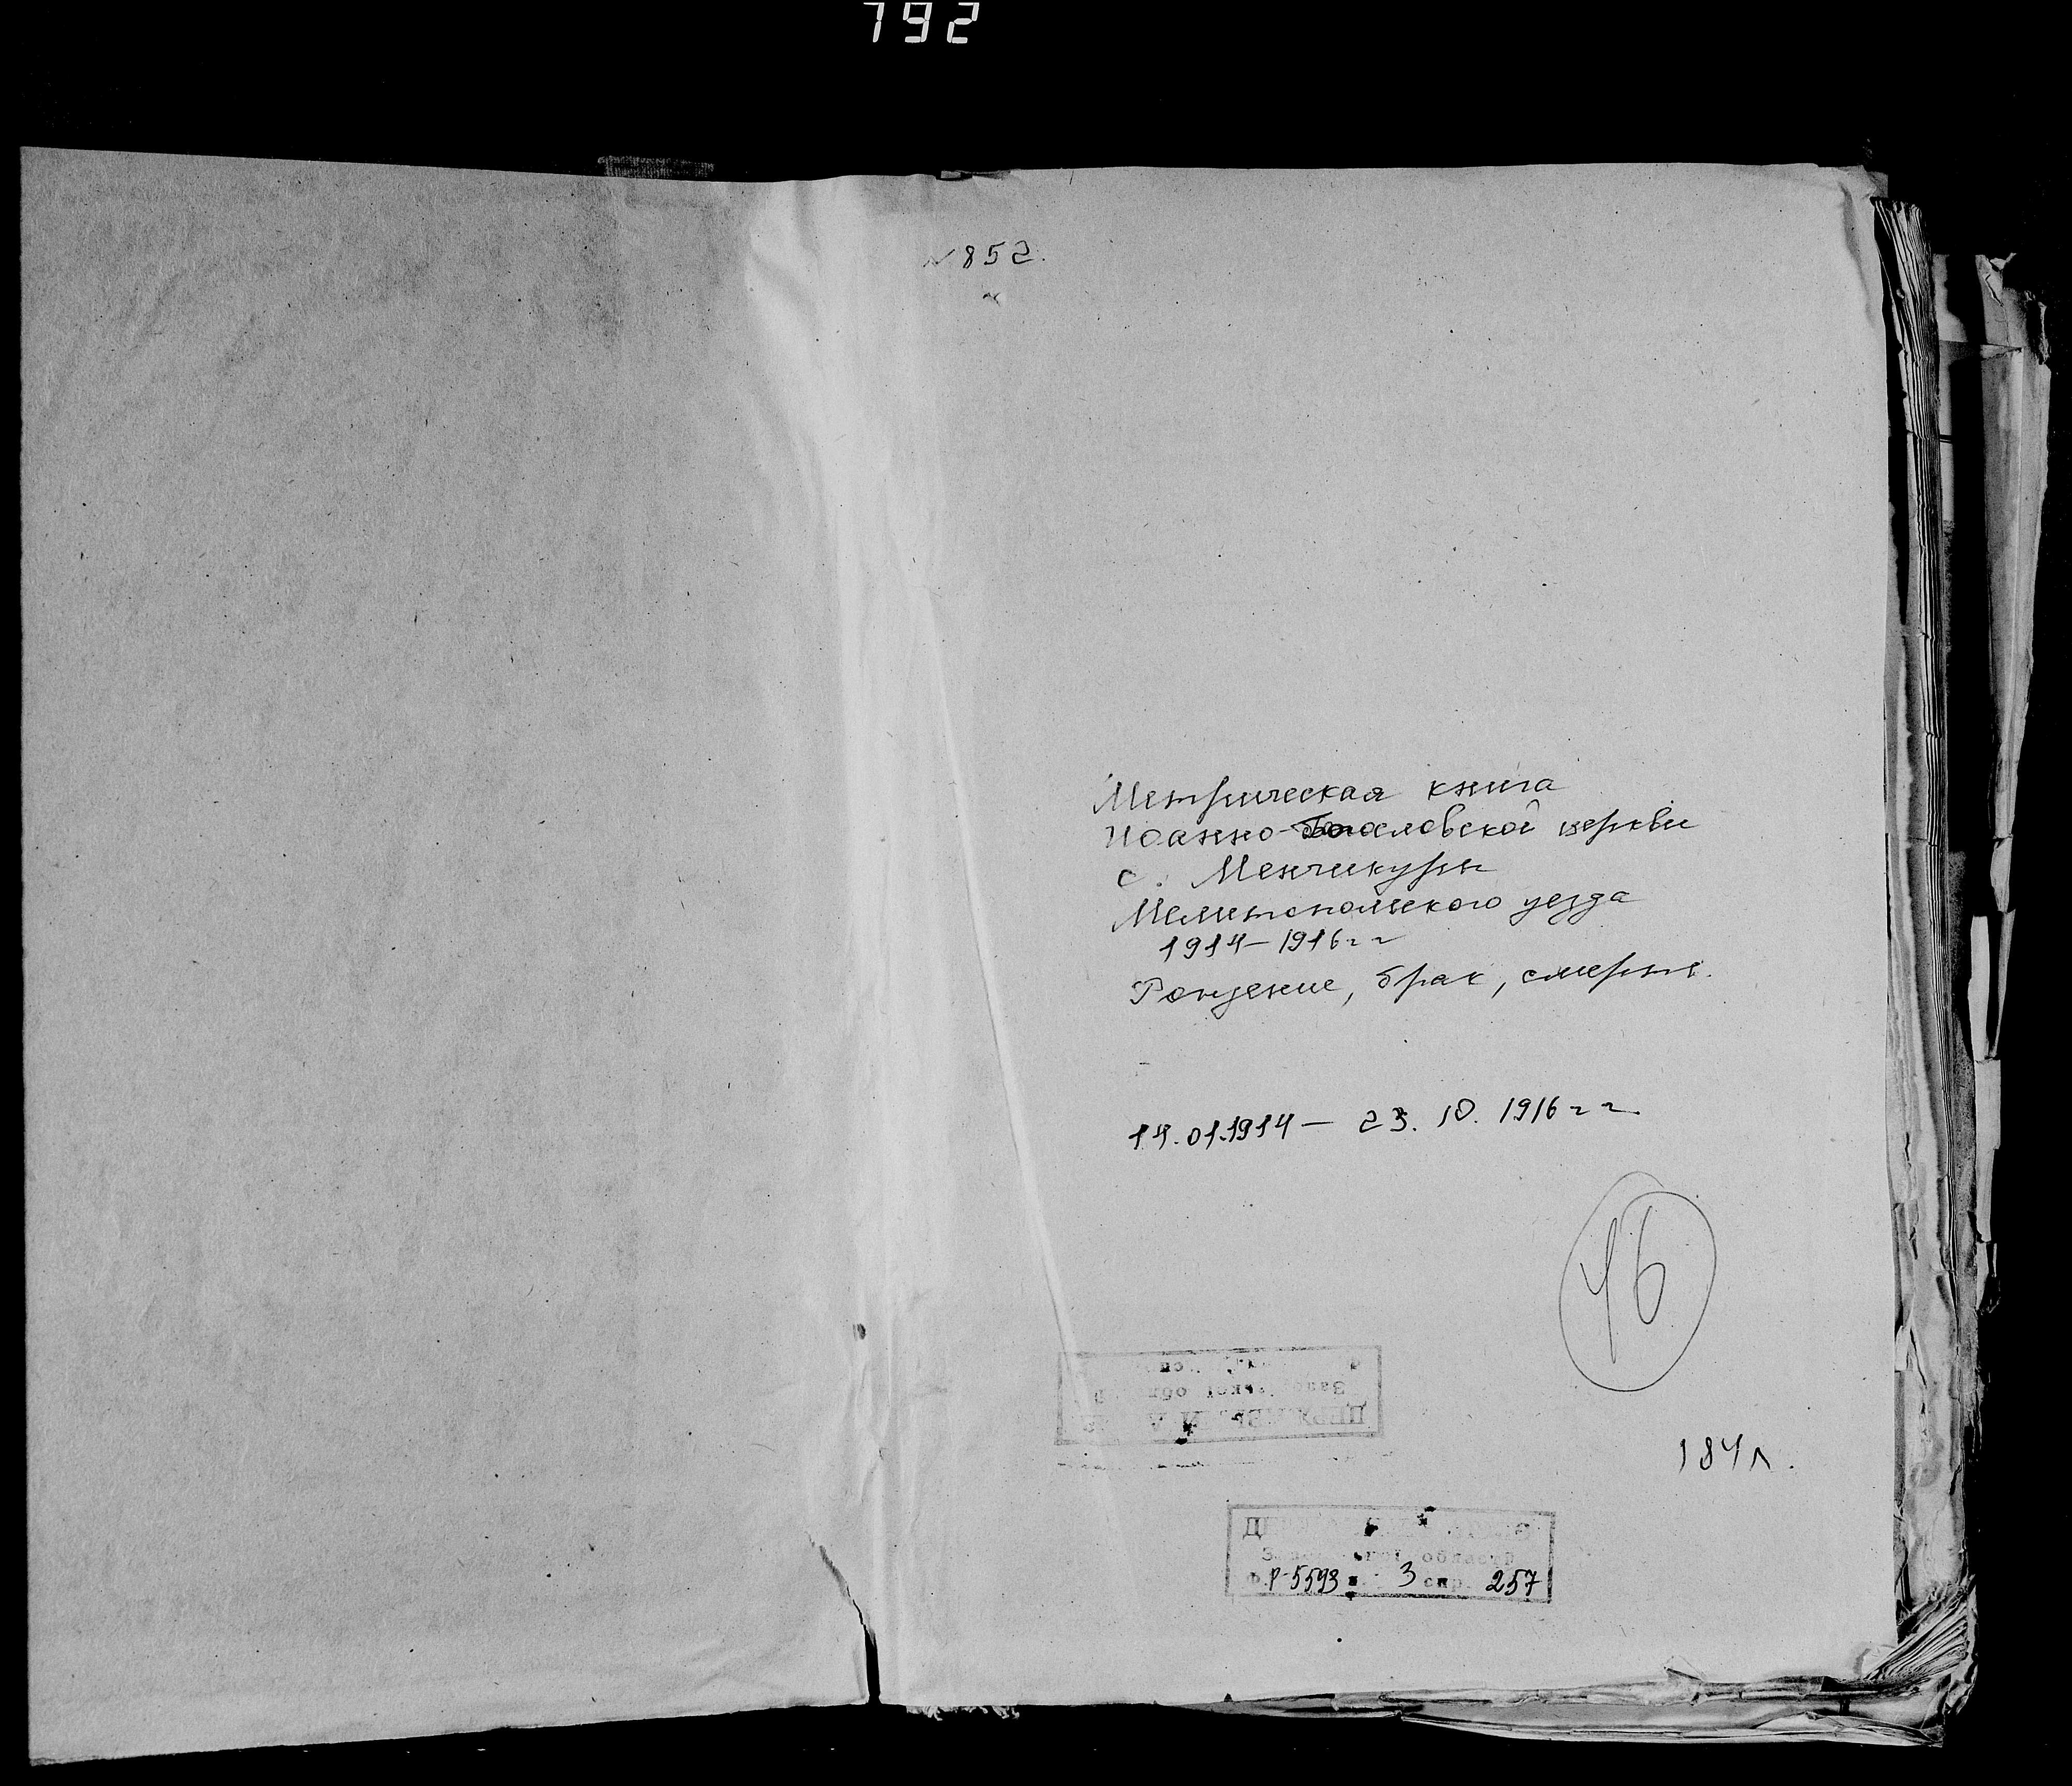 792
№852.
Метрическая книга
Иоанно-Богословской церкви
с. Менчикуры
Мелитопольского уезда
1914-1916гг
Рождение, брак, смерть.
14.01.1914 — 23. 10. 1916гг.
46
184л.
области
Р-5593 3 спр. 257